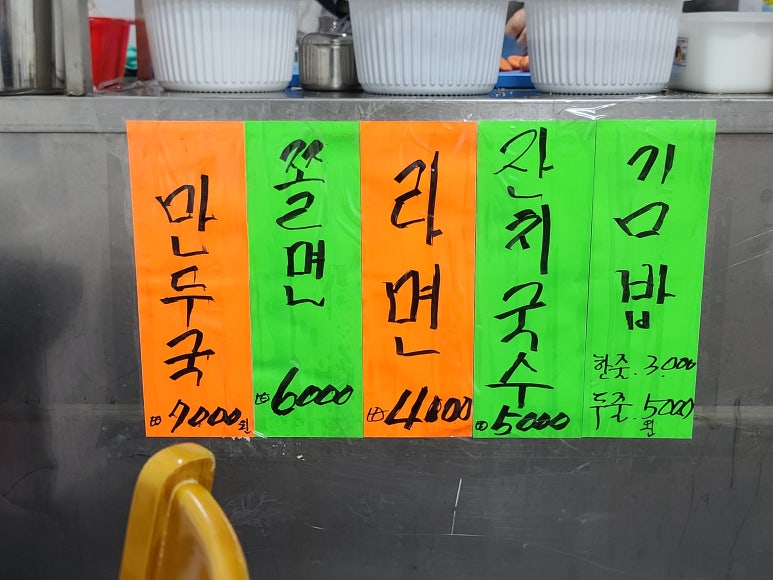 만두국
7000원
쫄면
6000
라면
4000
잔치국수
5000
김밥
한줏. 3.000
두줄. 5000
원